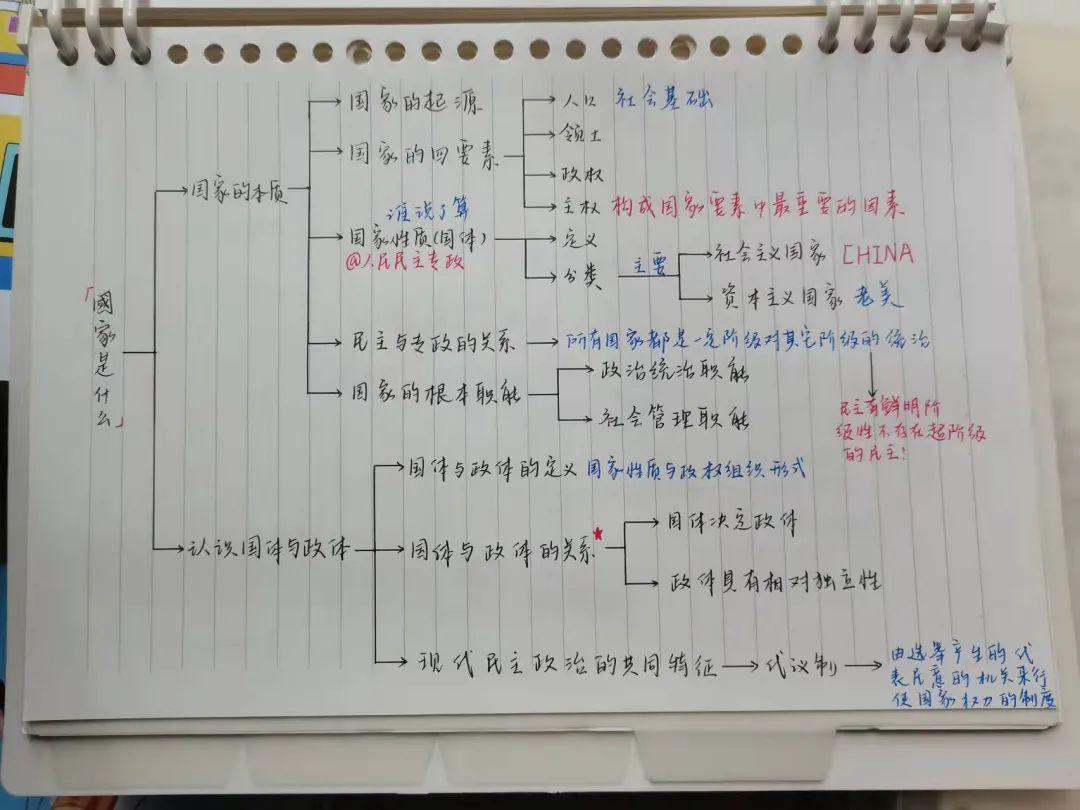 「國家是什么」
国家的本质
国家的起源
国家的四要素
人口 社会基础
领土
政权
主权 构成国家要素中最重要的因素
谁说了算
国家性质(国体)
@人民民主专政
定义
分类
主要
社会主义国家 CHINA
资本主义国家 老美
民主与专政的关系
所有国家都是一定阶级对其它阶级的统治
民主有鲜明阶
级性不存在超阶级
的民主!
国家的根本职能
政治统治职能
社会管理职能
认识国体与政体
国体与政体的定义 国家性质与政权组织形式
国体与政体的关系
国体决定政体
政体具有相对独立性
现代民主政治的共同特征
代议制
由选举产生的代
表民意的机关来行
使国家权力的制度